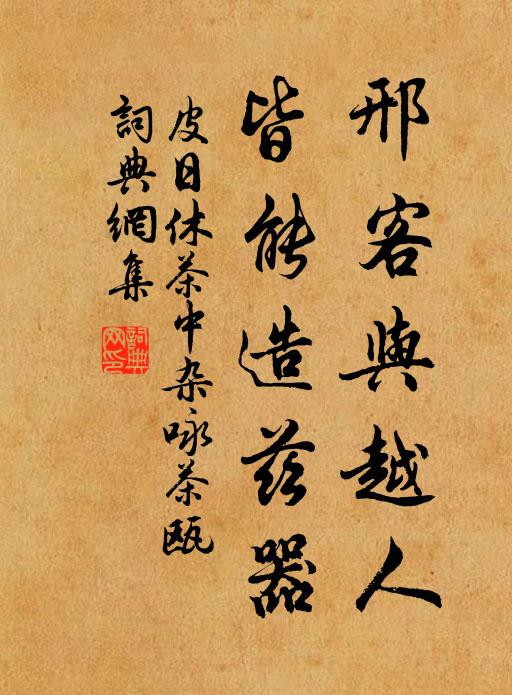 邢客與越人
皆能造茲器
皮日休茶中杂咏茶甌
詞典網集
詞典网印